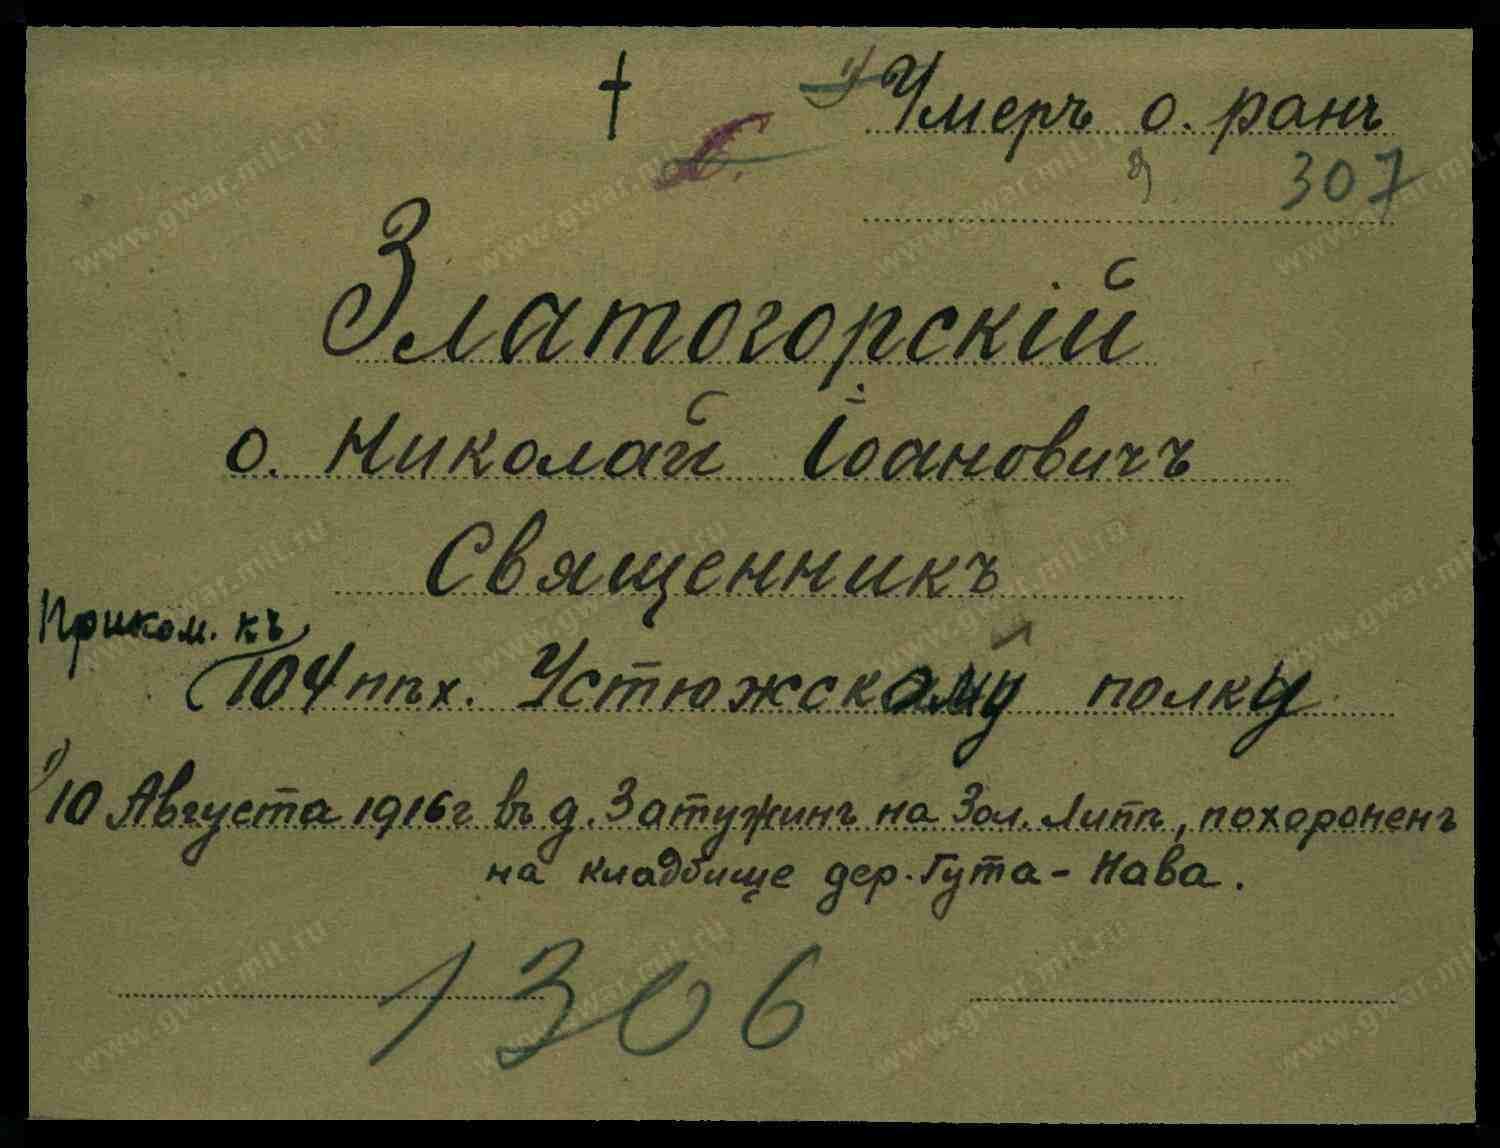 Умеръ о. ранъ
307
Златогорскій
о. Николай Іоановичъ
Священникъ
Приком. къ
104 пѣх. Устюжскому полку
10 Августа 1916 г въ д. Затужинъ на Зол. Липѣ, похороненъ
на кладбище дер. Гута-Нава.
1306
www.gwar.mil.ru